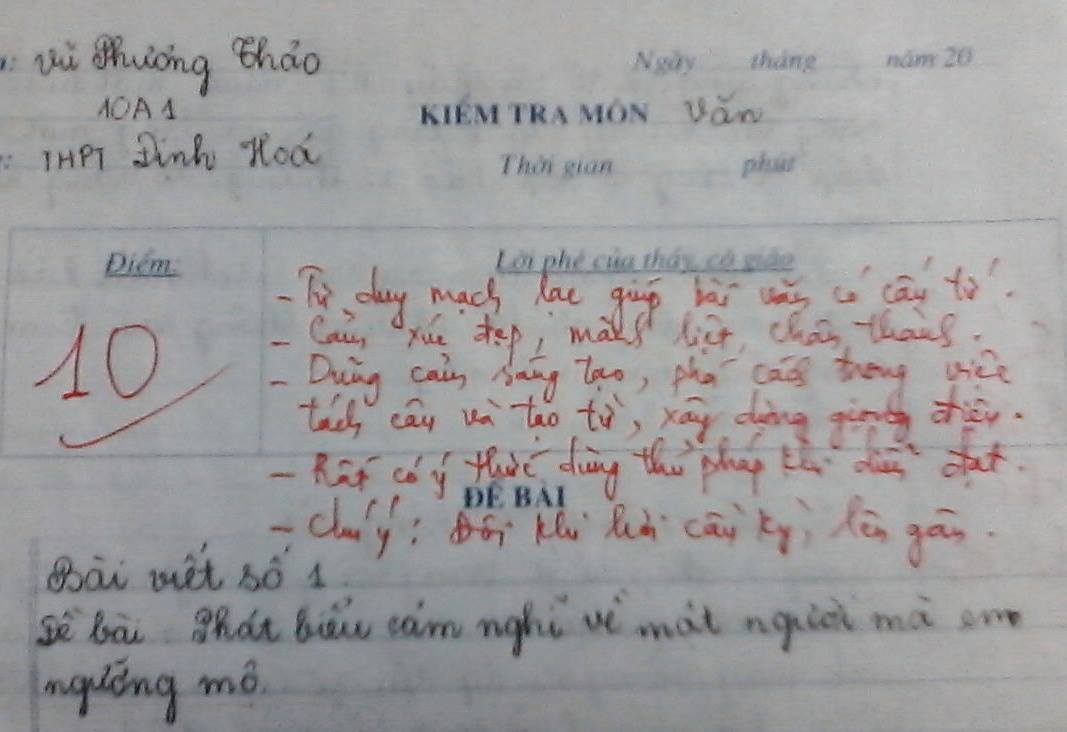 : Vũ Phương Thảo
Ngày tháng năm 20
10A1
KIỂM TRA MÔN Văn
: THPT Định Hoá
Thời gian phút
Điểm:
Lời phê của thầy, cô giáo
10
- Tư duy mạch lạc giúp bài văn có cấu tứ.
- Cảm xúc đẹp, mãnh liệt, chân thành.
- Dũng cảm sáng tạo, phá cách trong việc
tách câu và tạo từ, xây dựng giọng điệu.
- Rất có ý thức dùng thủ pháp khi diễn đạt.
ĐỀ BÀI
- Chú ý: Đôi khi hơi cầu kỳ, lên gân.
Bài viết số 1.
Đề bài Phát biểu cảm nghĩ về một người mà em
ngưỡng mộ.